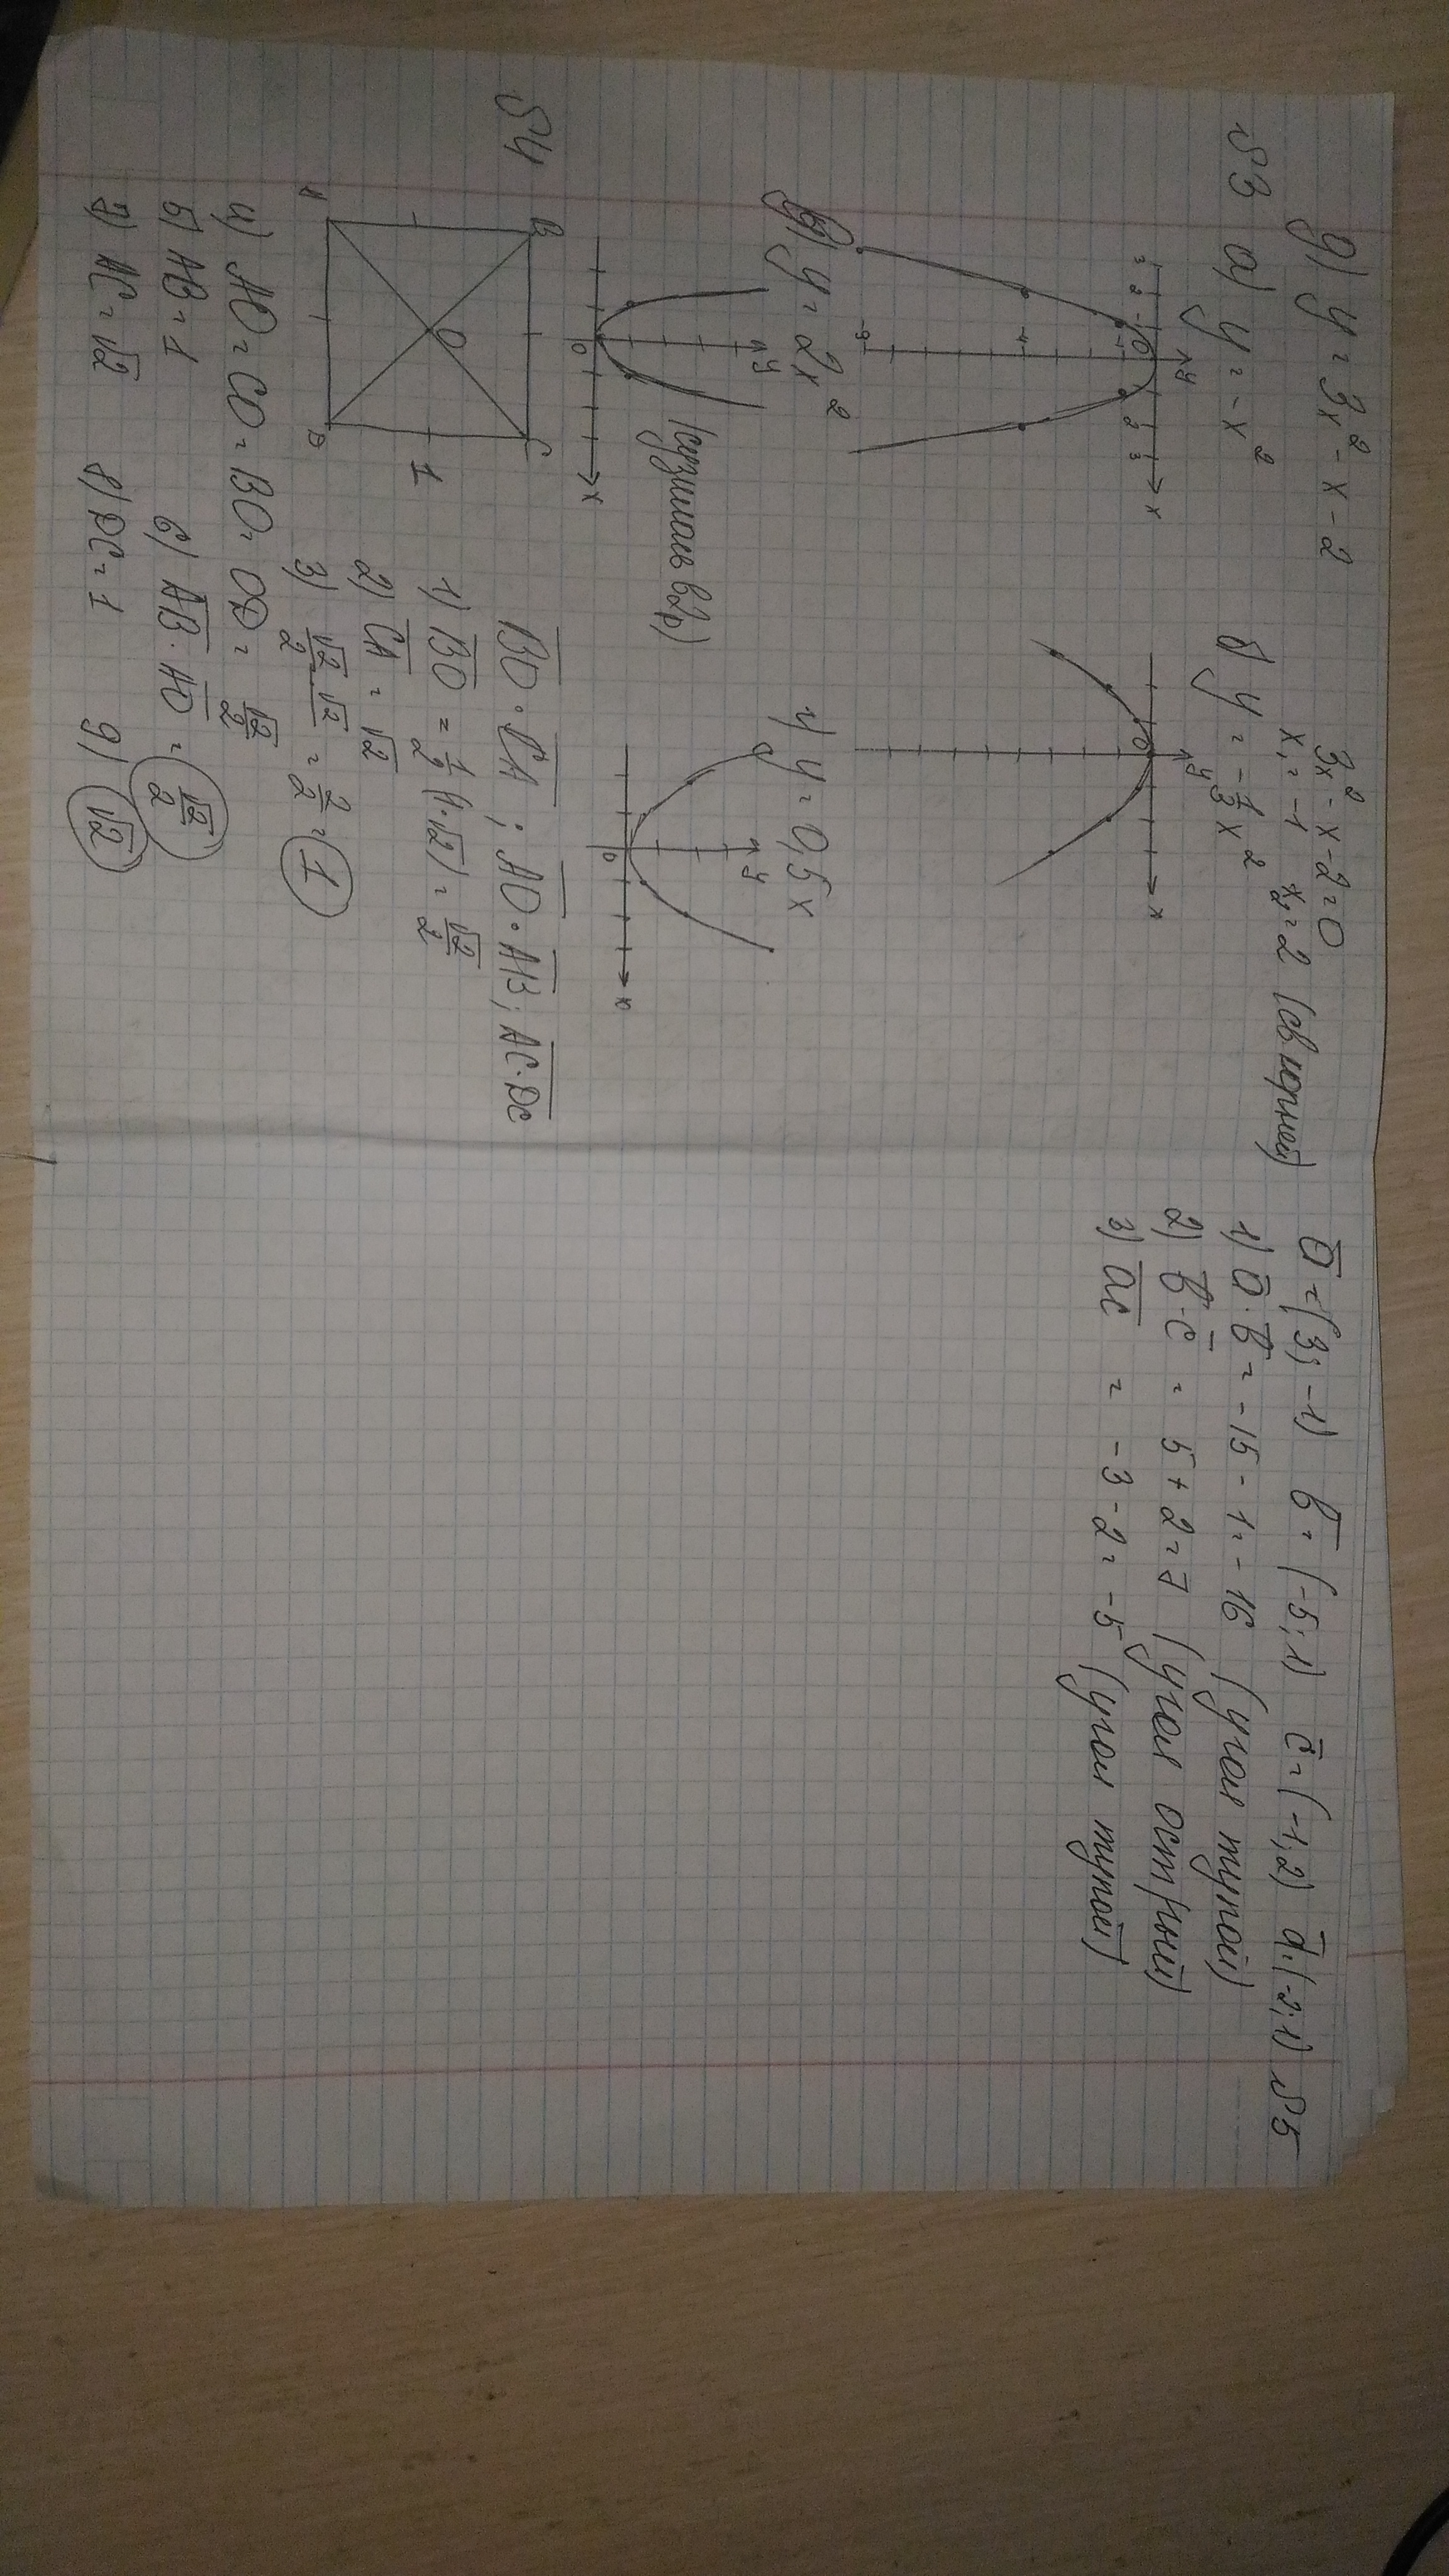 д) y = 3x² - x - 2
3x² - x - 2 = 0
x₁ = -1 x₂ = 2 (св корней)
№3 а) y = -x²
б) y = -1/3 x²
y
x
3 2 -1 0 2 3
-1
-4
-9
y
0
x
в) y = 2x²
г) y = 0,5x
y
0
x
y
0
x
№4
B
C
O
A
D
1
BO · CA ; AO · AB ; AC · DC
1) BO = 1/2 (1·√2) = √2/2
2) CA = √2
3) √2/2 · √2 = 2/2 = 1
4) AO = CO = BO = OD = √2/2
5) AB = 1
6) AB · AO = √2/2
7) AC = √2
8) DC = 1
9) √2
a = (3; -1) b = (-5; 1) c = (-1; 2) d = (-2; 1) №5
1) a · b = -15 - 1 = -16 (угол тупой)
2) b · c = 5 + 2 = 7 (угол острый)
3) ac = -3 - 2 = -5 (угол тупой)